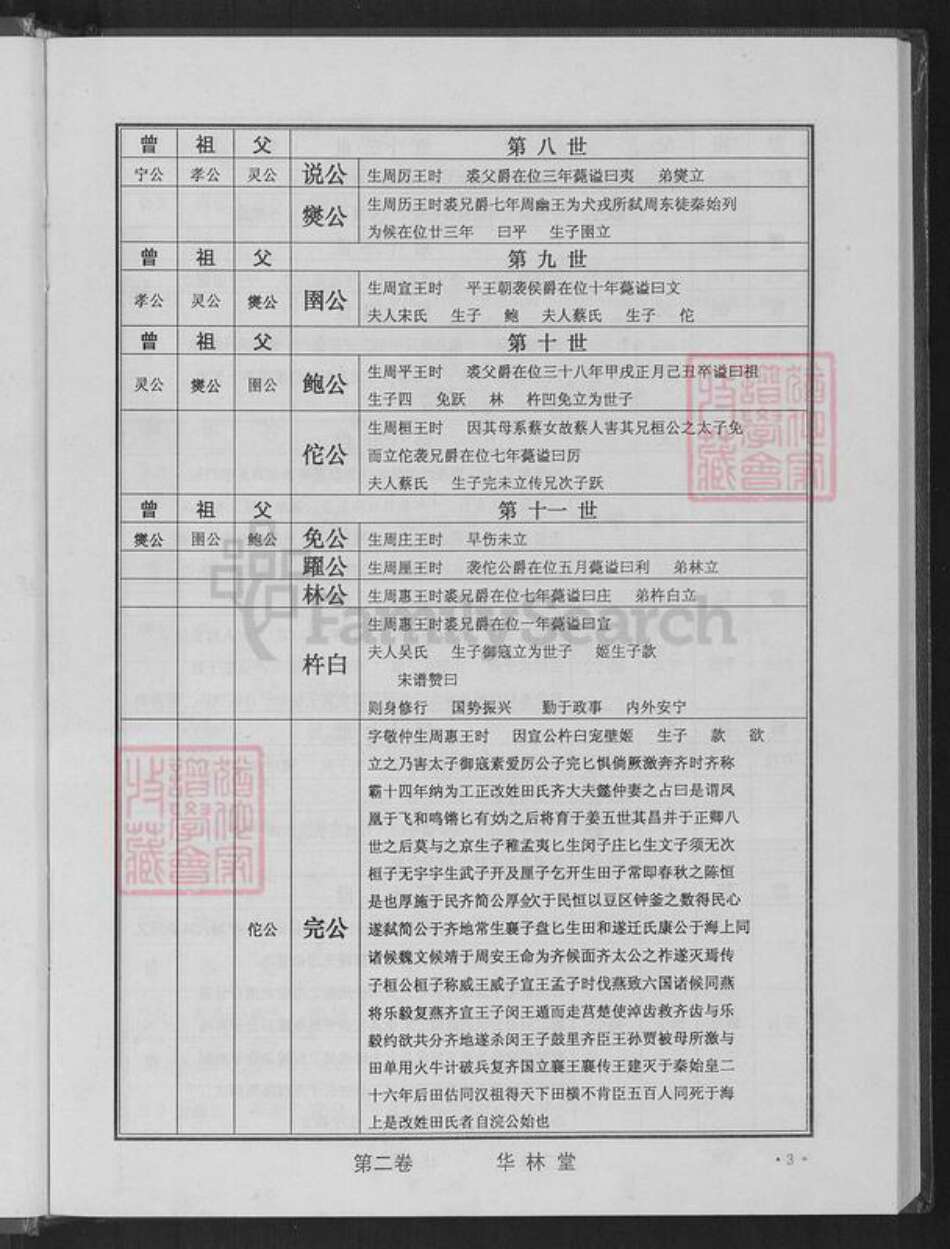 曾 祖 父 第八世
宁公 孝公 灵公 说公 生周厉王时 袭父爵在位三年薨谥曰夷 弟燮立
燮公 生周历王时袭兄爵七年周幽王为犬戎所弑周东徒秦始列
为候在位廿三年 曰平 生子圉立
曾 祖 父 第九世
孝公 灵公 燮公 圉公 生周宣王时 平王朝袭侯爵在位十年薨谥曰文
夫人宋氏 生子 鲍 夫人蔡氏 生子 佗
曾 祖 父 第十世
灵公 燮公 圉公 鲍公 生周平王时 袭父爵在位三十八年甲戌正月己丑卒谥曰祖
生子四 免跃 林 杵凹免立为世子
佗公 生周桓王时 因其母系蔡女故蔡人害其兄桓公之太子免
而立佗袭兄爵在位七年薨谥曰厉
夫人蔡氏 生子完未立传兄次子跃
曾 祖 父 第十一世
燮公 圉公 鲍公 免公 生周庄王时 早伤未立
躍公 生周厘王时 袭佗公爵在位五月薨谥曰利 弟林立
林公 生周惠王时袭兄爵在位七年薨谥曰庄 弟杵白立
杵白 生周惠王时袭兄爵在位一年薨谥曰宣
夫人吴氏 生子御寇立为世子 姬生子款
宋谱赞曰
则身修行 国势振兴 勤于政事 内外安宁
佗公 完公 字敬仲生周惠王时 因宣公杵臼宠壁姬 生子 款 欲
立之乃害太子御寇素爱厉公子完匕惧倘厥激奔齐时齐称
霸十四年纳为工正改姓田氏齐大夫懿仲妻之占曰是谓凤
凰于飞和鸣锵匕有妫之后将育于姜五世其昌并于正卿八
世之后莫与之京生子稚孟夷匕生闵子庄匕生文子须无次
桓子无宇宇生武子开及厘子乞开生田子常即春秋之陈恒
是也厚施于民齐简公厚敛欠于民恒以豆区钟釜之数得民心
遂弑简公于齐地常生襄子盘匕生田和遂迁氏康公于海上同
诸候魏文候靖于周安王命为齐候面齐太公之祚遂灭焉传
子桓公桓子称威王威子宣王孟子时伐燕致六国诸候同燕
将乐毅复燕齐宣王子闵王遁而走莒楚使淖齿救齐齿与乐
毅约欲共分齐地遂杀闵王子鼓里齐臣王孙贾被母所激与
田单用火牛计破兵复齐国立襄王襄传王建灭于秦始皇二
十六年后田估同汉祖得天下田横不肯臣五百人同死于海
上是改姓田氏者自浣公始也
第二卷 华林堂 ·3·
FamilySearch